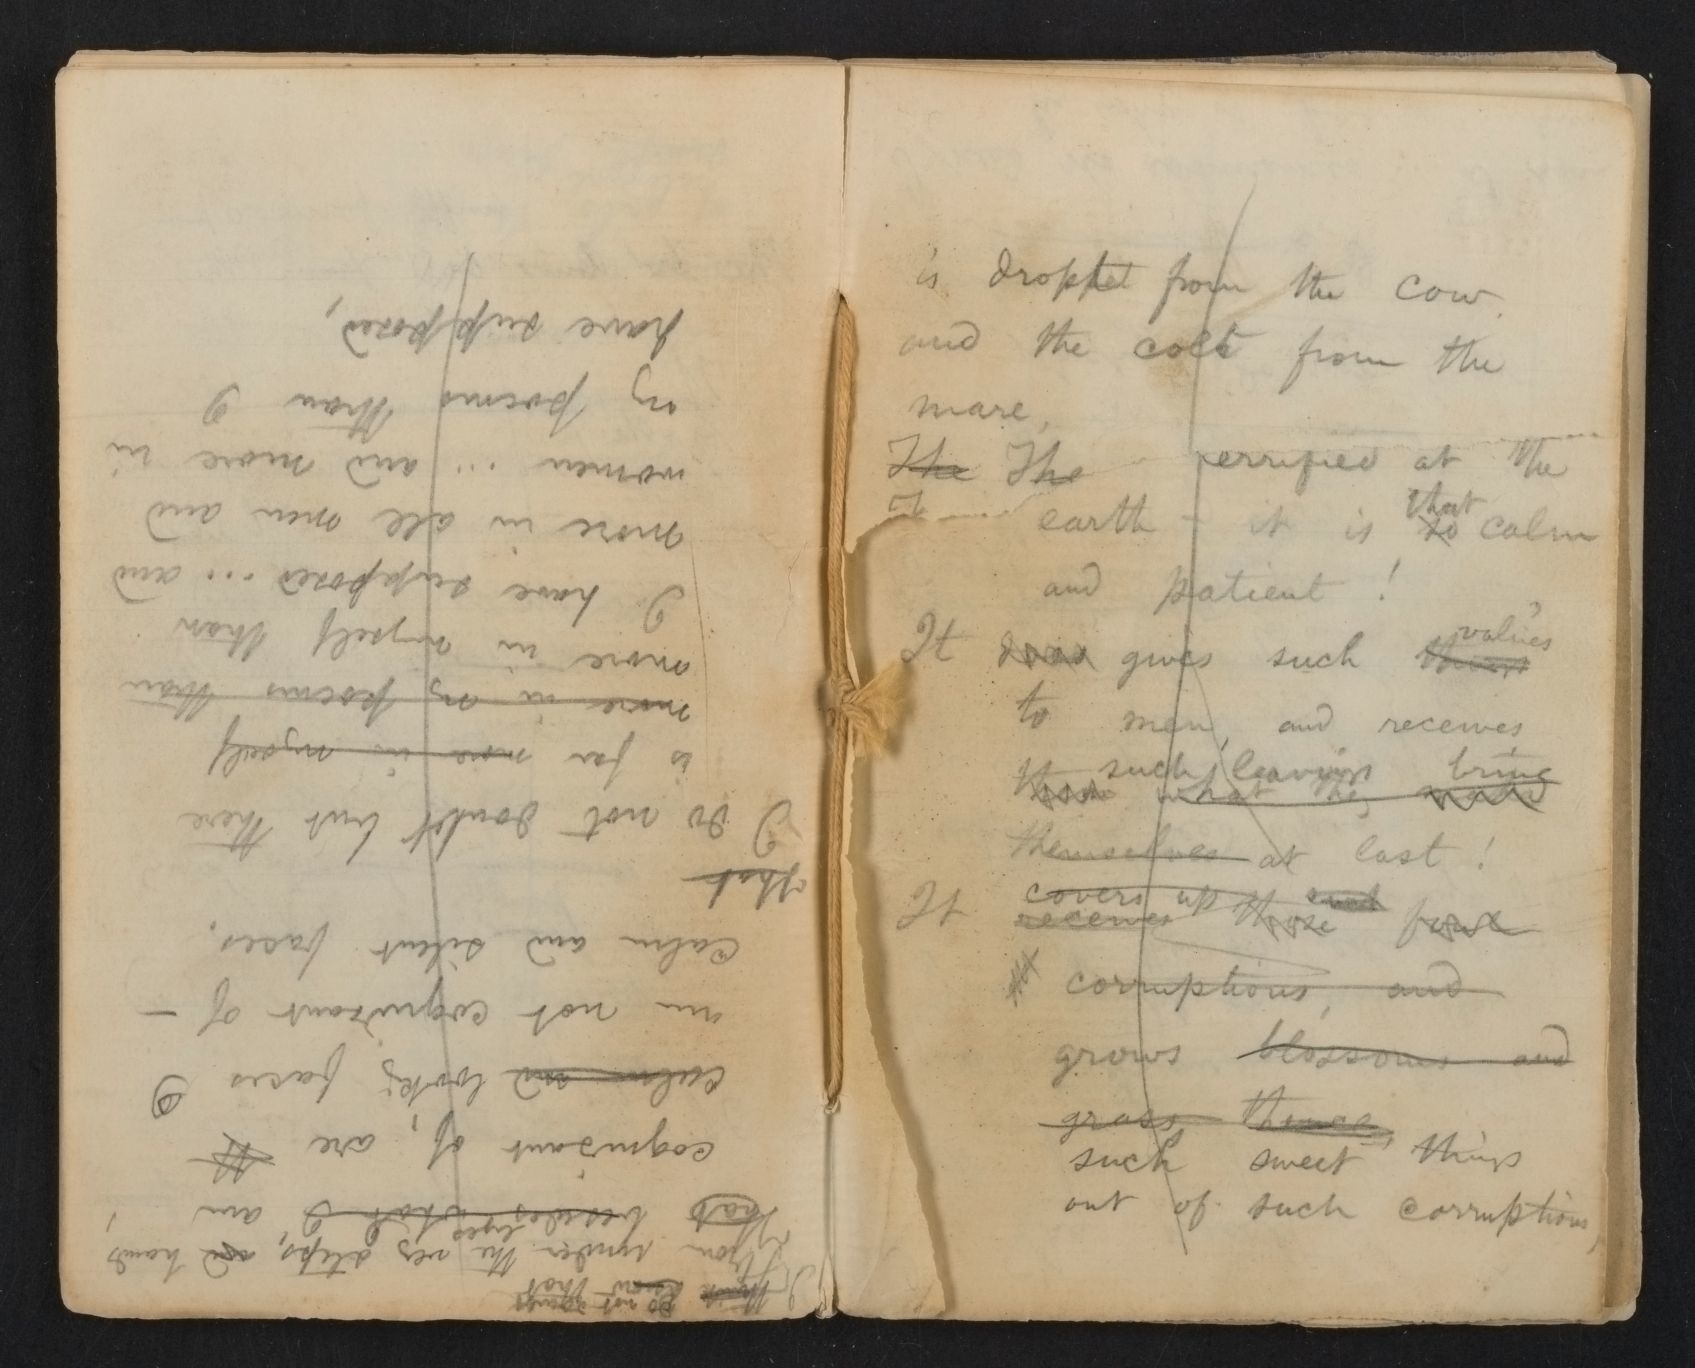 I think do not doubt know that
from under the very steps, and hands
that besides eyes what I am
cognizant of, are it
calm and looking faces I
am not cognizant of —
calm and silent faces.
that
I do not doubt but there
is far more in myself
more in my poems than
more in myself than
I have supposed ... and
more in all men and
women ... and more in
my poems than I
have supposed,
is dropt from the cow
and the colt from the
mare,
The The terrified at the
earth – it is that so calm
and patient !
It does gives such values things
to men, and receives
such leavings bring
from what they
themselves at last !
It covers up and
receives those foul
corruptions, and
grows blossoms and
grass thence,
such sweet things
out of such corruptions,